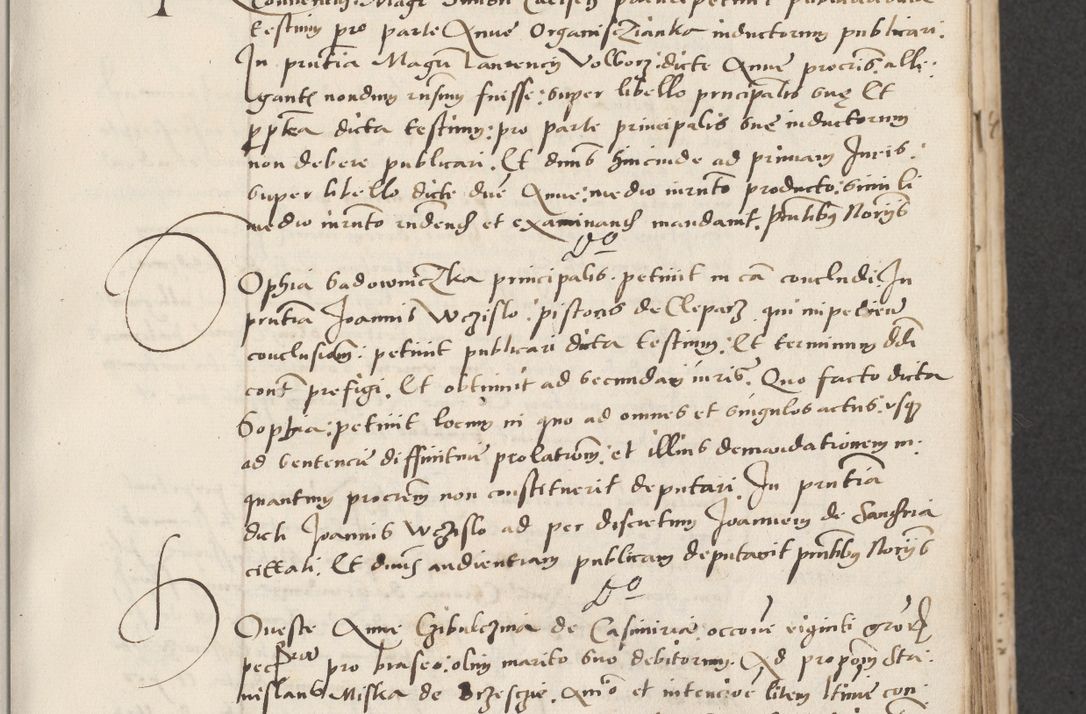 testium pro parte Anne Organiscżianka inductorum publicari.
In prñtia Magri Laurencij Volborz dicte Anne procris. alle:
gantis nondum rñsum fuisse: super libello prncipalis sue. Et
pptea dicta testium: pro parte principalis sue inductorum
non debere publicari. Et dnus hincinde ad primam Juris.
super libello dicte dne Anne: medio iurnto producto: simili
medio iurnto rñdendum et examinandum mandavit. prñtibus Norijs
Do
Sophia Sadowniczka principalis. petiuit in ca concludi: In
prñtia Joannis Wczislo: pistoris de Clepardz qui impediens
conclusionem: petiuit publicari dicta testium: Et terminum ddi
cont prefigi. Et obtinuit ad secundam iuris. Quo facto dicta
Sophia: petiuit locum in quo ad omnes et singulos actus: usque
ad sententie diffinitiue prolationem: et illius demandationem in:
quantum procrem non constituerit deputari. In prñtia
dicti Joannis Wczislo ad per discretum Joannem de Sanghria
cittati: Et dnus audientiam publicam deputavit prñtibus Norijs
Do
Honeste Anne Czibulczina de Casimiria: occoe viginti
pro braseo: olim marito suo debitorum. Ad propom Sta:
nislaus Miska de Brzescze. Animo et intencioe litem ltime con: